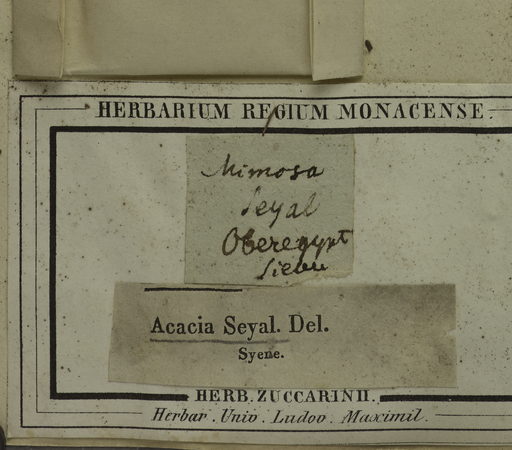 HERBARIUM REGIUM MONACENSE.
Mimosa
Seyal
Oberegypt
Acacia Seyal. Del.
Syene.
HERB. ZUCCARINII.
Herbar. Univ. Ludov. Maximil.